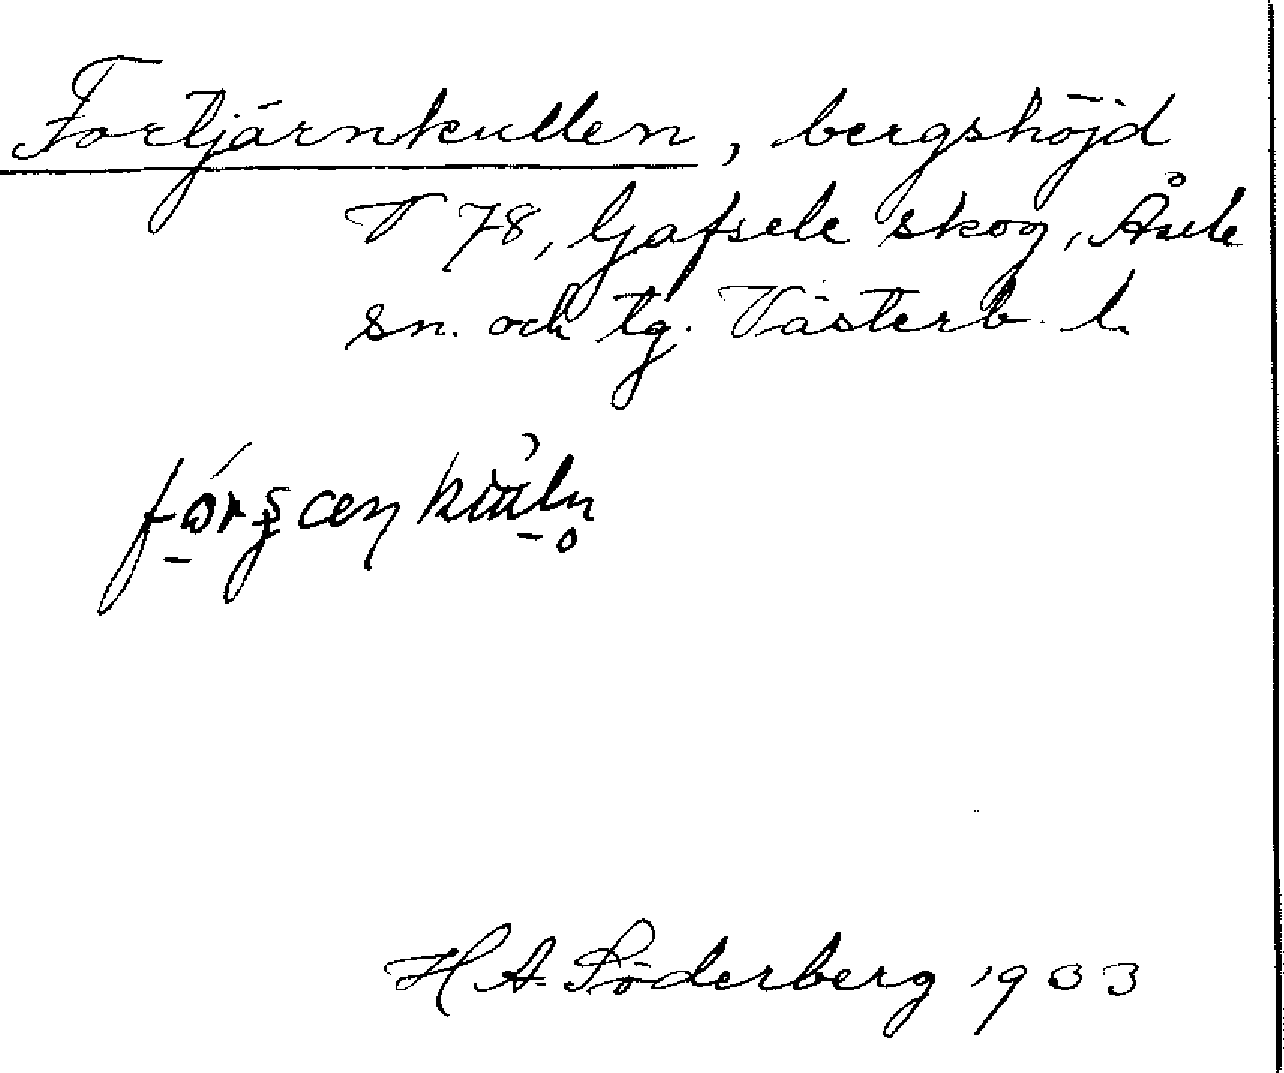 Fortjärnkullen, bergshöjd
T 78, Gafsele skog, Åsele
sn. och tg. Västerb. l.
H A Söderberg 1933